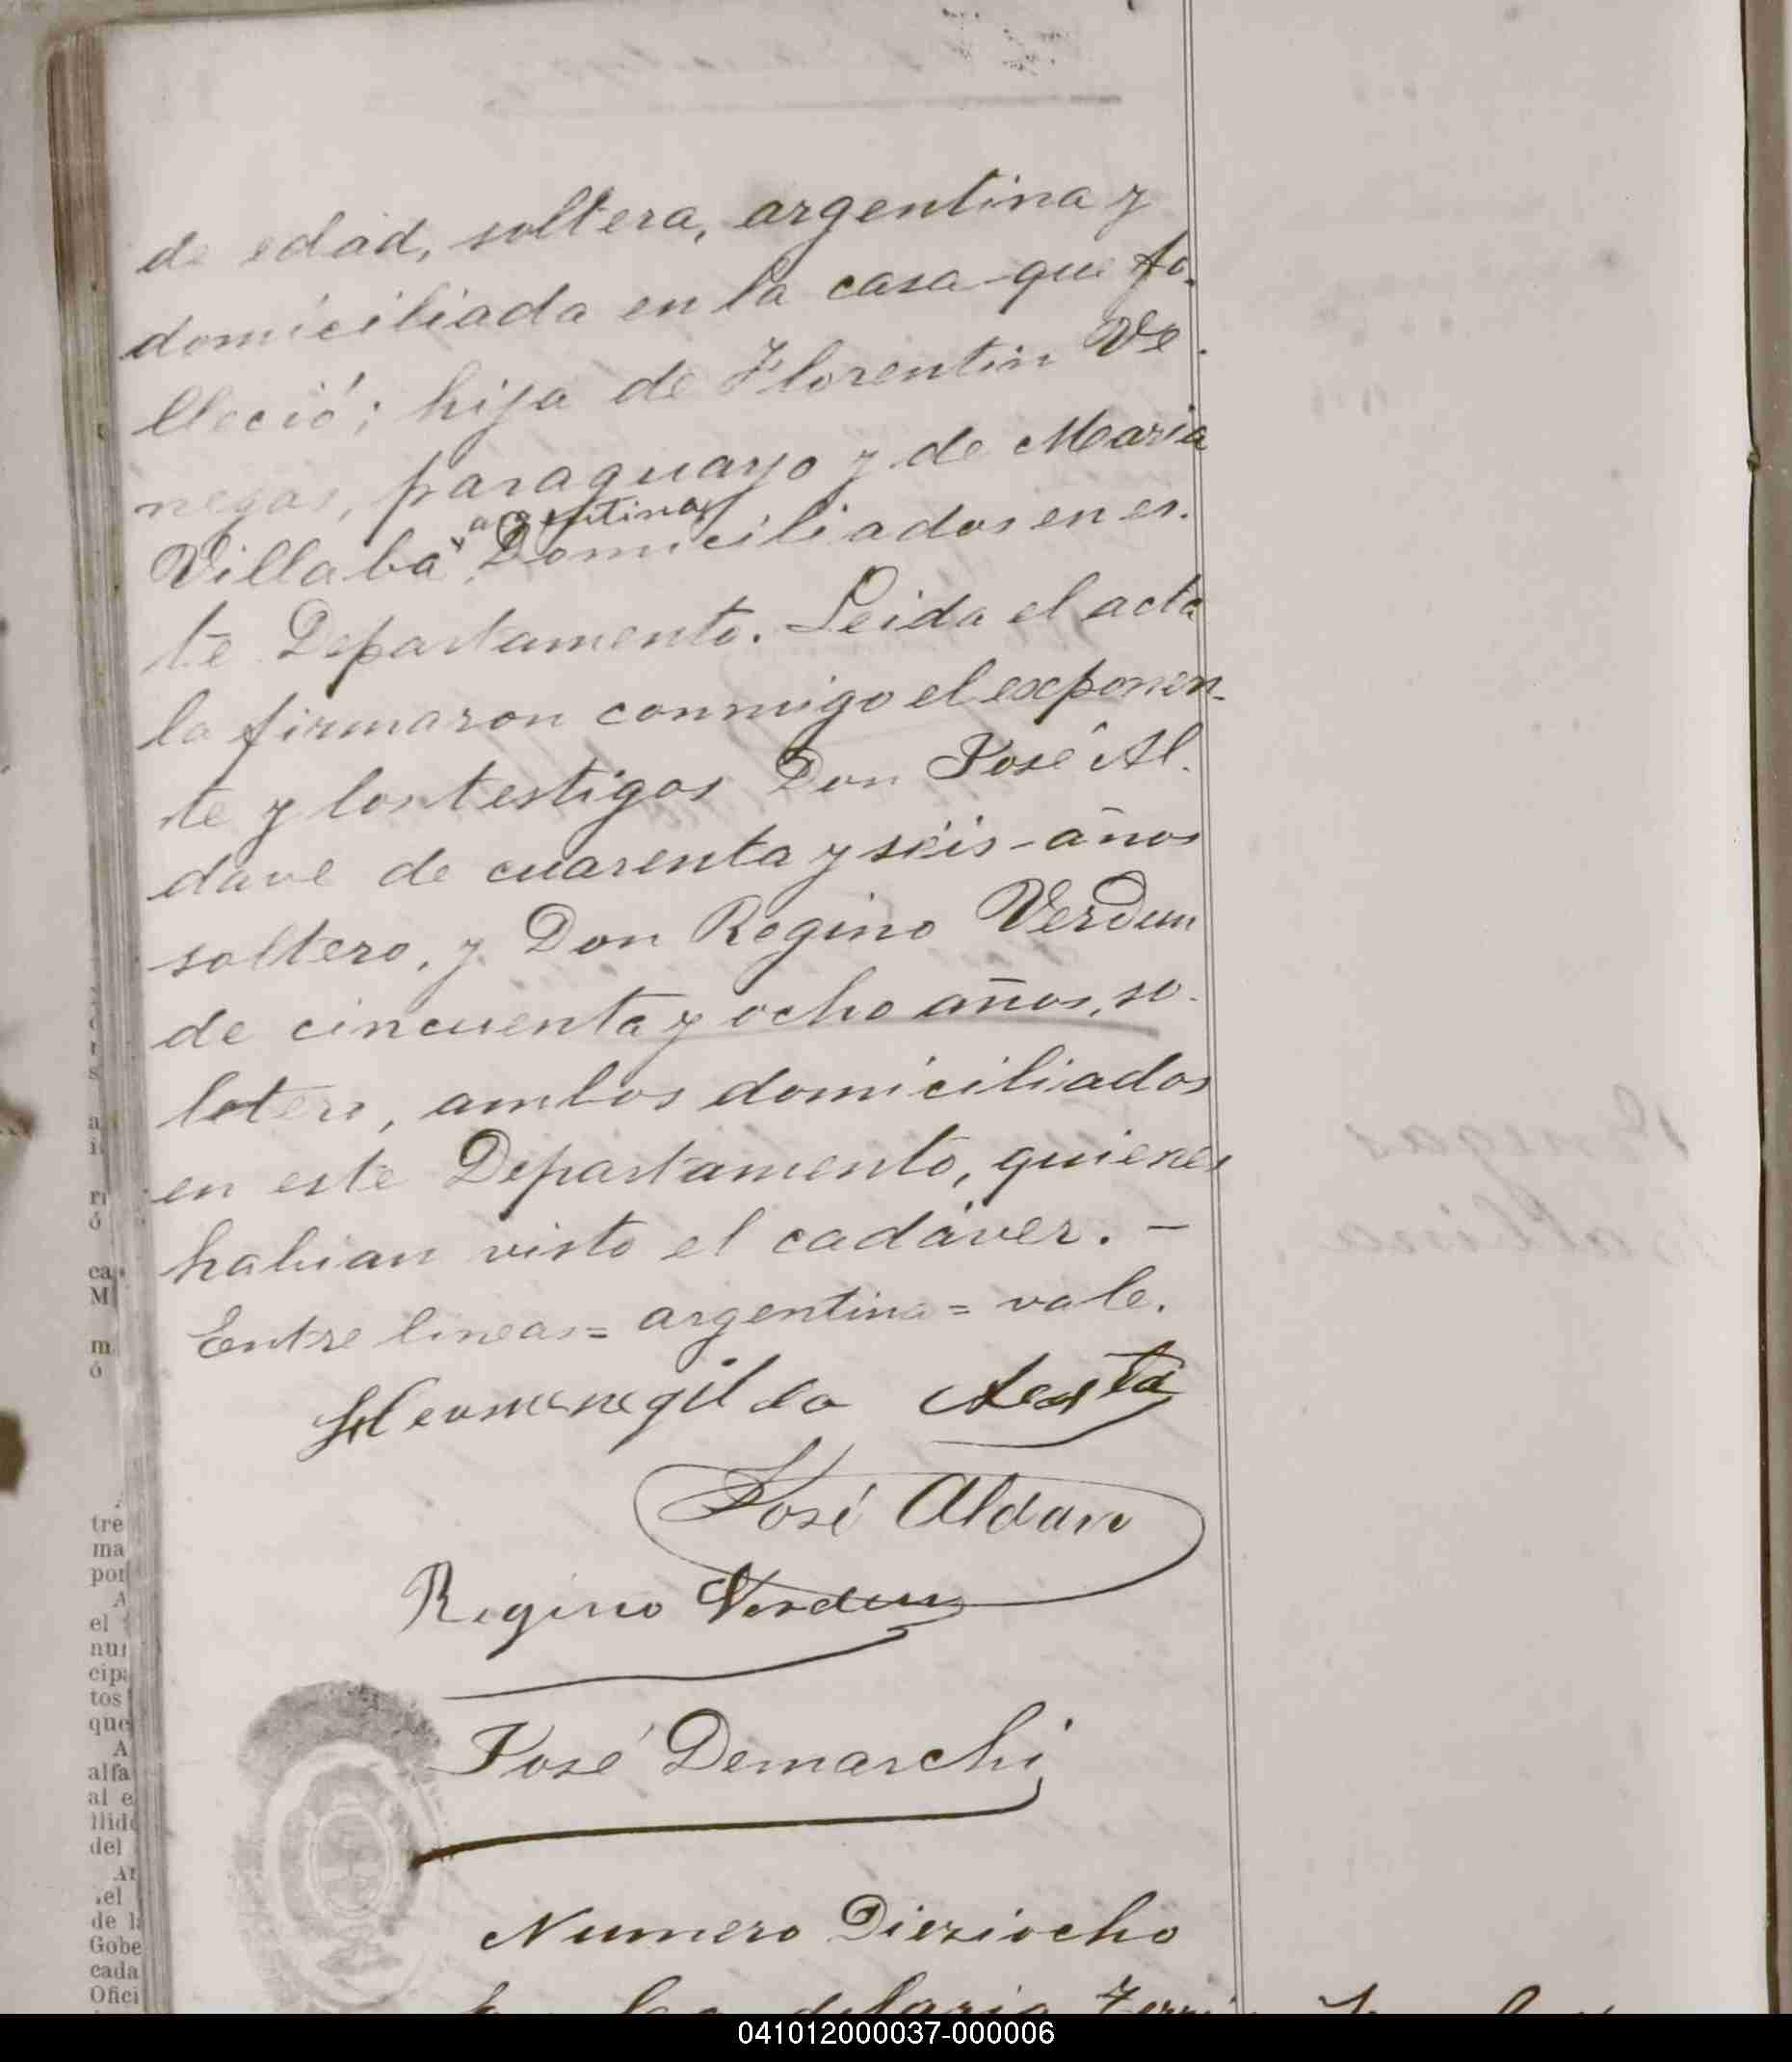 de edad, soltera, argentina y
domiciliada en la casa que fa-
lleció; hija de Florentin Ve-
negas, paraguayo y de Maria
argentina
Villaba, Domiciliados en es-
te Departamento. Leida el acta
la firmaron conmigo el exponen-
te y los testigos Don José Al-
dave de cuarenta y seis años
soltero, y Don Regino Verdun
de cincuenta y ocho años, so-
letero, ambos domiciliados
en este Departamento, quienes
habian visto el cadáver. -
Entre lineas = argentina = vale.
Hermenegildo Acosta
José Aldave
Regino Verdun
José Demarchi
Numero Dieziocho
tre
ma
por
A
el
nun
cipa
tos
que
A
alfa
al e
llido
del
el
de la
Gobe
cada
Ofici
041012000037-000006